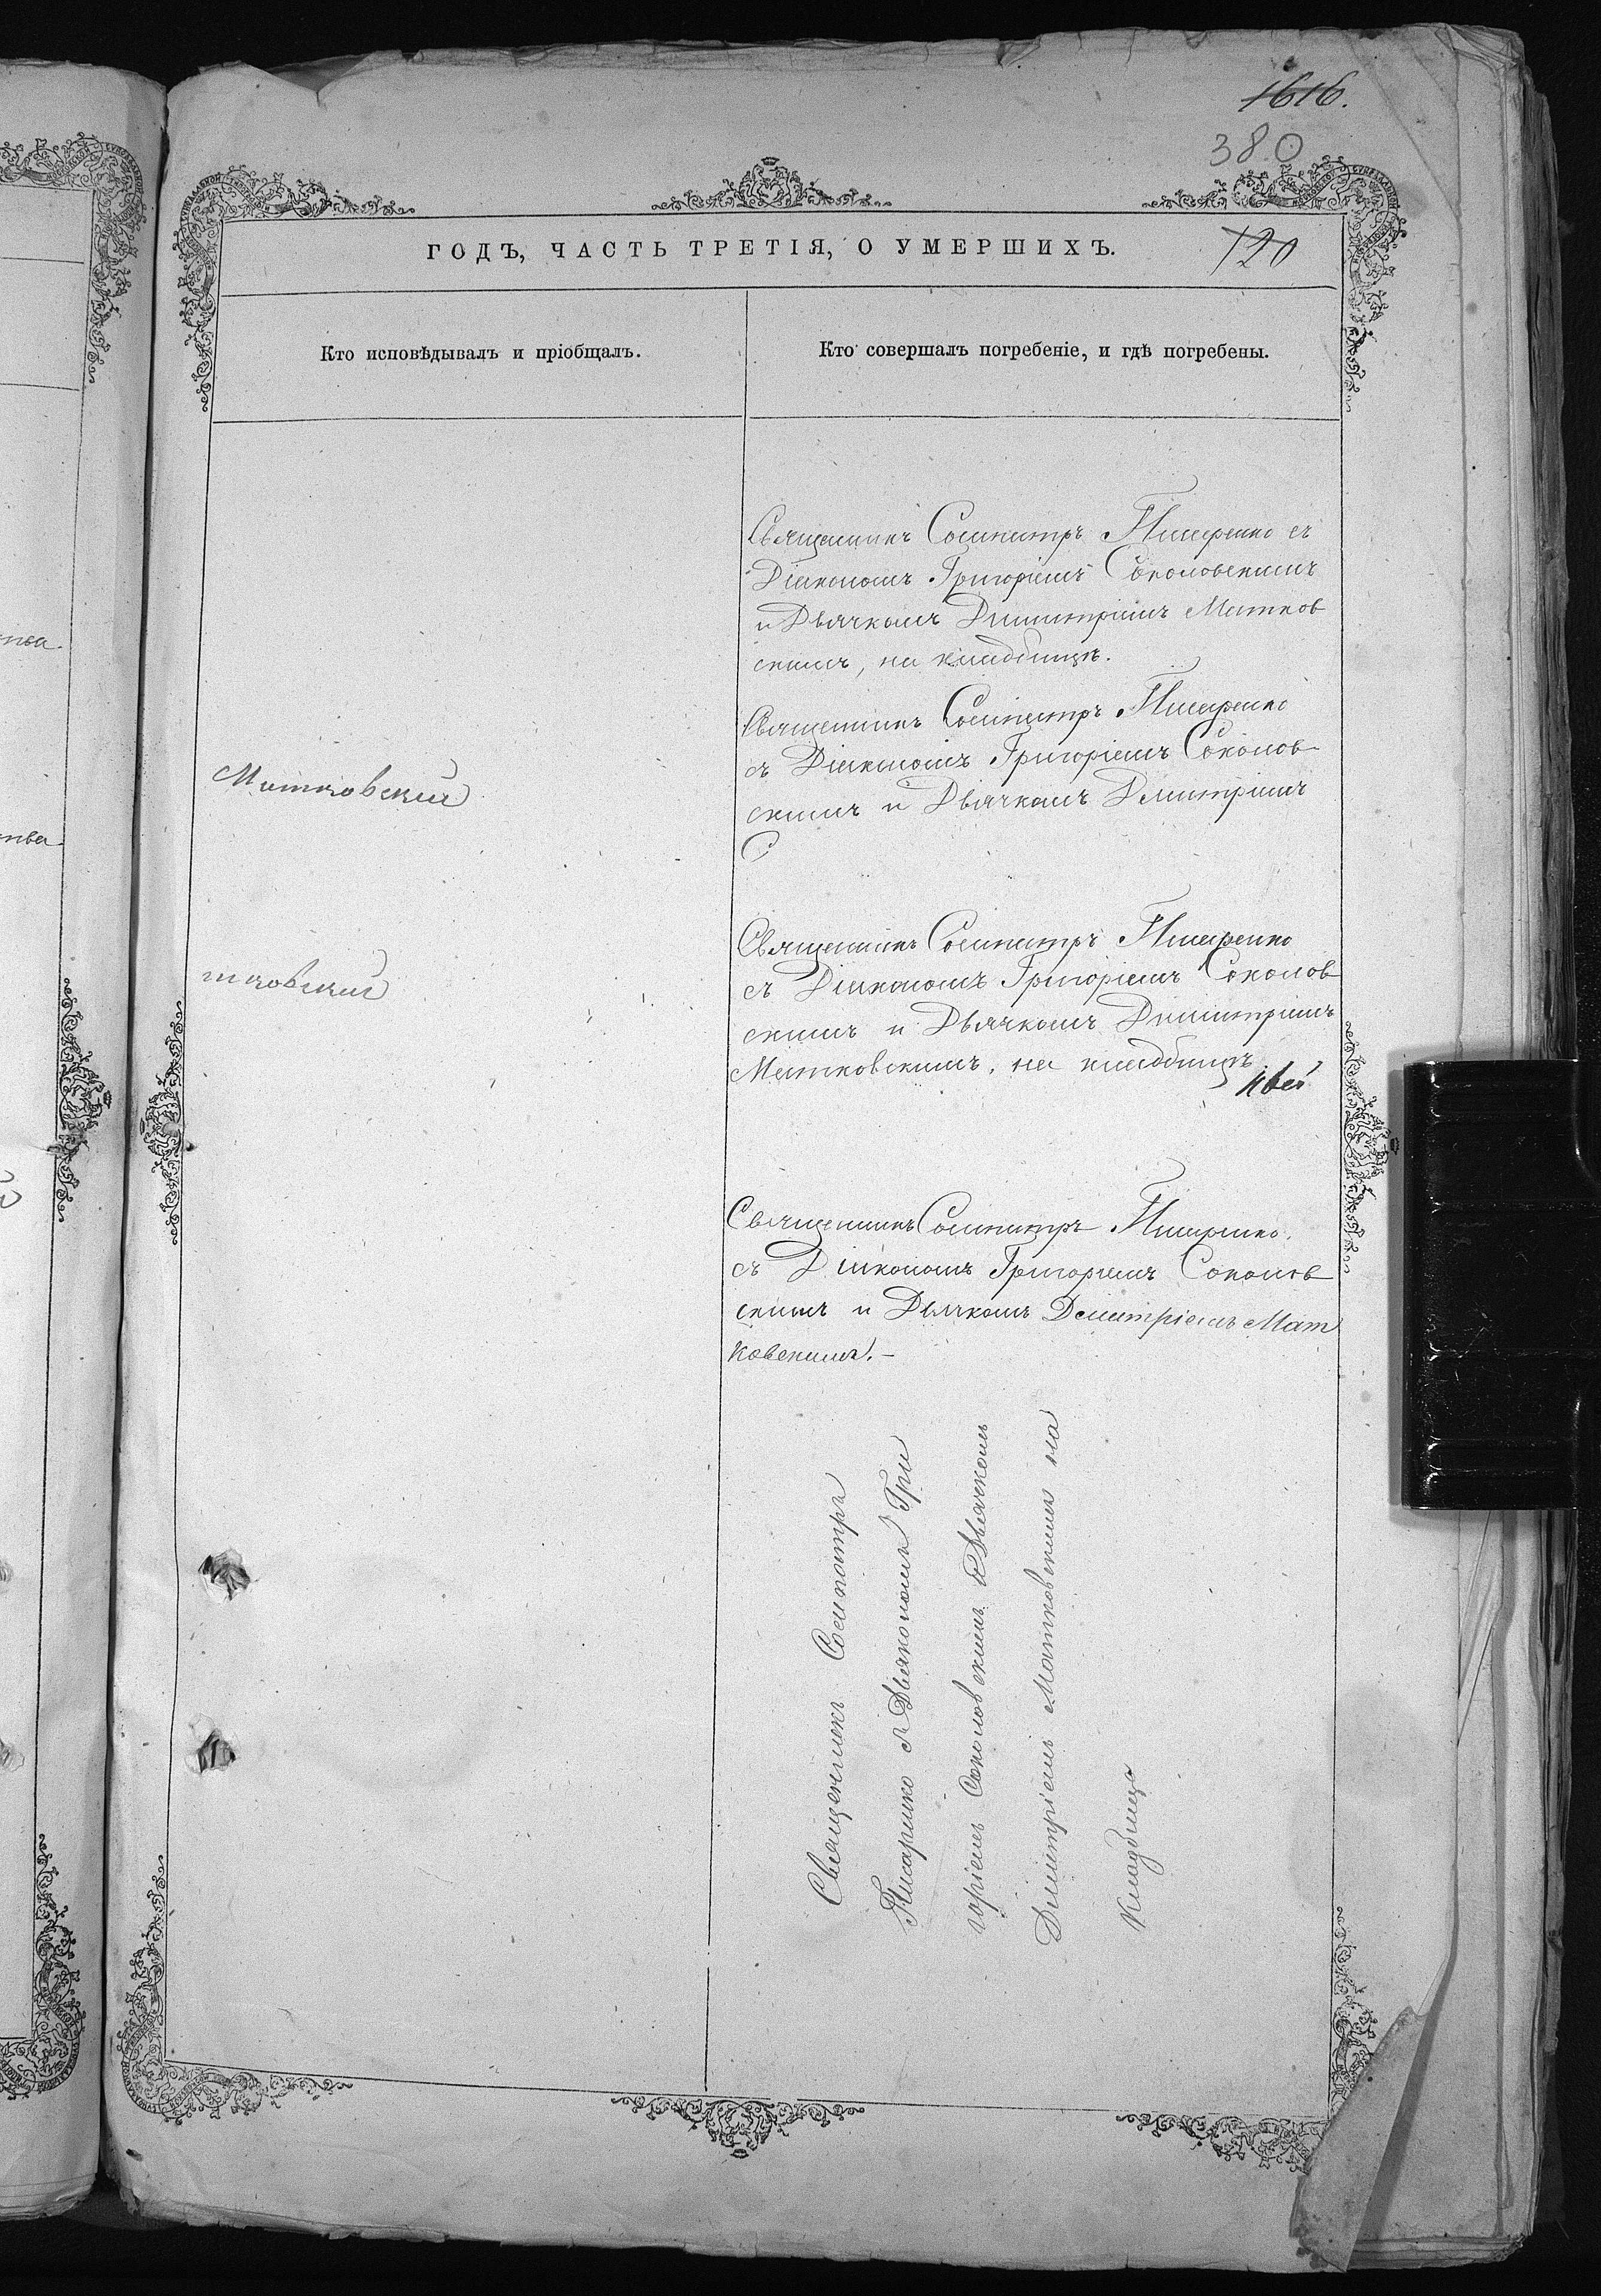 1616.
380
ГОДЪ, ЧАСТЬ ТРЕТІЯ, О УМЕРШИХЪ.
720
Кто исповѣдывалъ и пріобщалъ.
Кто совершалъ погребеніе, и гдѣ погребены.
Священникъ Сосипатръ Писаренко съ
Діакономъ Григоріемъ Соколовскимъ
и Дьячкомъ Димитріемъ Матков
скимъ, на кладбищѣ.
Священникъ Сосипатръ Писаренко
съ Діакономъ Григоріемъ Соколов
скимъ и Дьячкомъ Димитріемъ
С
Матковскій
Священникъ Сосипатръ Писаренко
съ Діакономъ Григоріемъ Соколов
скимъ и Дьячкомъ Димитріемъ
Матковскимъ, на кладбищѣ
тковскій
Священникъ Сосипатръ Писаренко
съ Діакономъ Григоріемъ Соколов
скимъ и Дьячкомъ Димитріемъ Мат
ковскимъ.–
Священникъ Сосипатръ
Писаренко съ Дьякономъ Гри
горіемъ Соколовскимъ и Дьячкомъ
Димитріемъ Матковскимъ на
Кладбищѣ
тва
тва